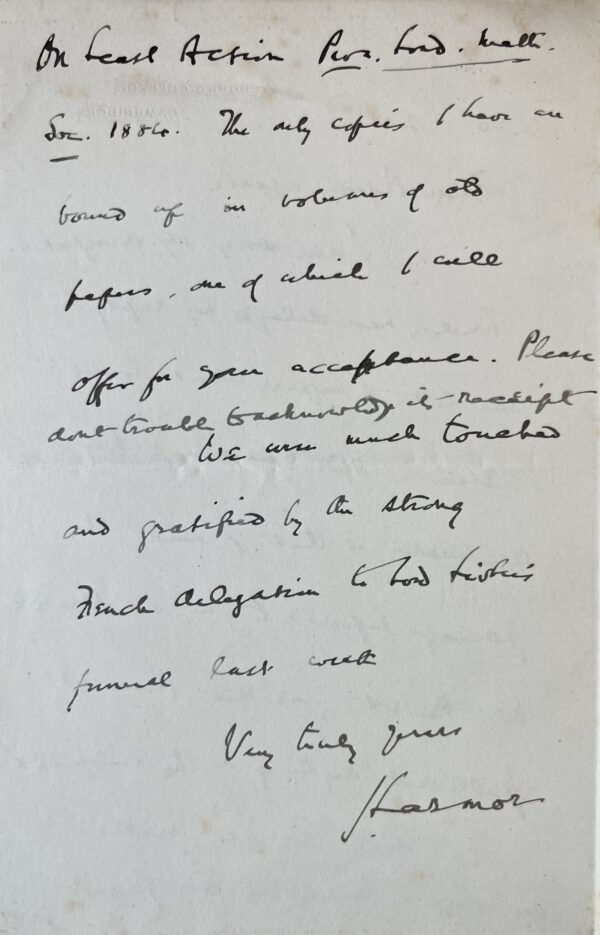 On Least Action Proc. Lond. Math.
Soc. 1884. The only copies I have are
bound up in volumes of old
papers, one of which I will
offer for your acceptance. Please
dont trouble to acknowledge its receipt
We were much touched
and gratified by the strong
French delegation to Lord Kelvin's
funeral last week
Very truly yours
J Larmor